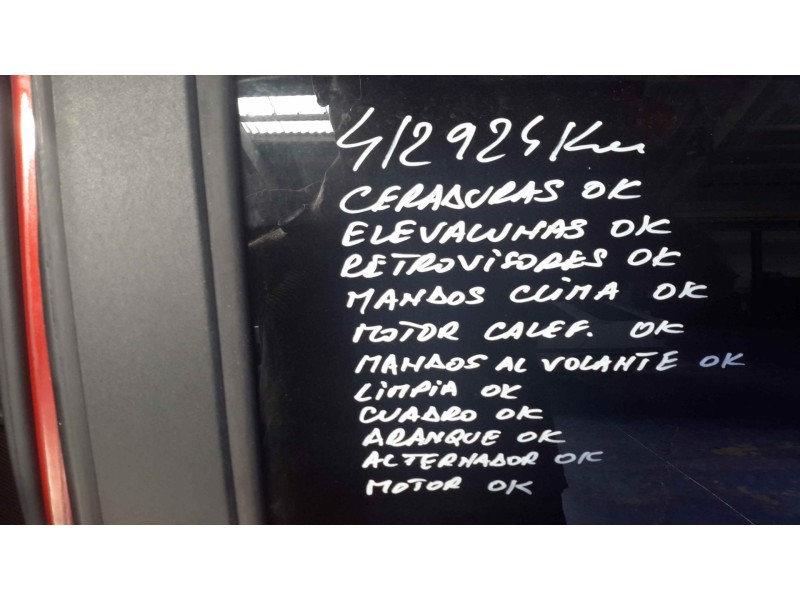 412924 Km
CERADURAS OK
ELEVALUNAS OK
RETROVISORES OK
MANDOS CLIMA OK
MOTOR CALEF. OK
MANDOS AL VOLANTE OK
LIMPIA OK
CUADRO OK
ARANQUE OK
ALTERNADOR OK
MOTOR OK